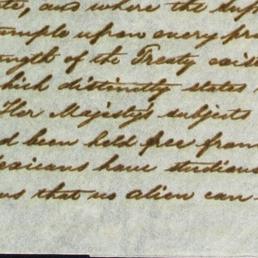 te, and where the sup
trample upon every pro
ength of the Treaty exis
which distinctly states
Her Majesty's subjects
d been held free from
xicans have studious
ns that no alien can